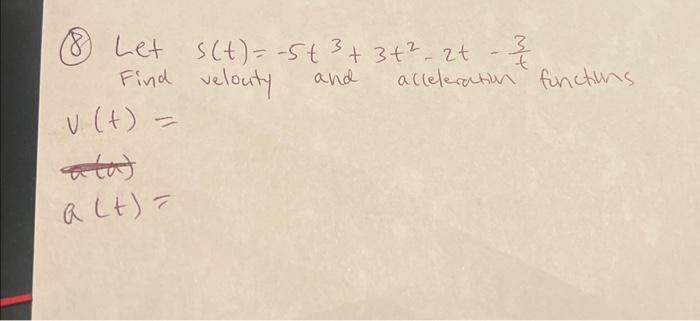 ⑧ Let s(t) = -5t³ + 3t² - 2t - 3/t
Find velocity and acceleration functions
v(t) =
a(a)
a(t) =